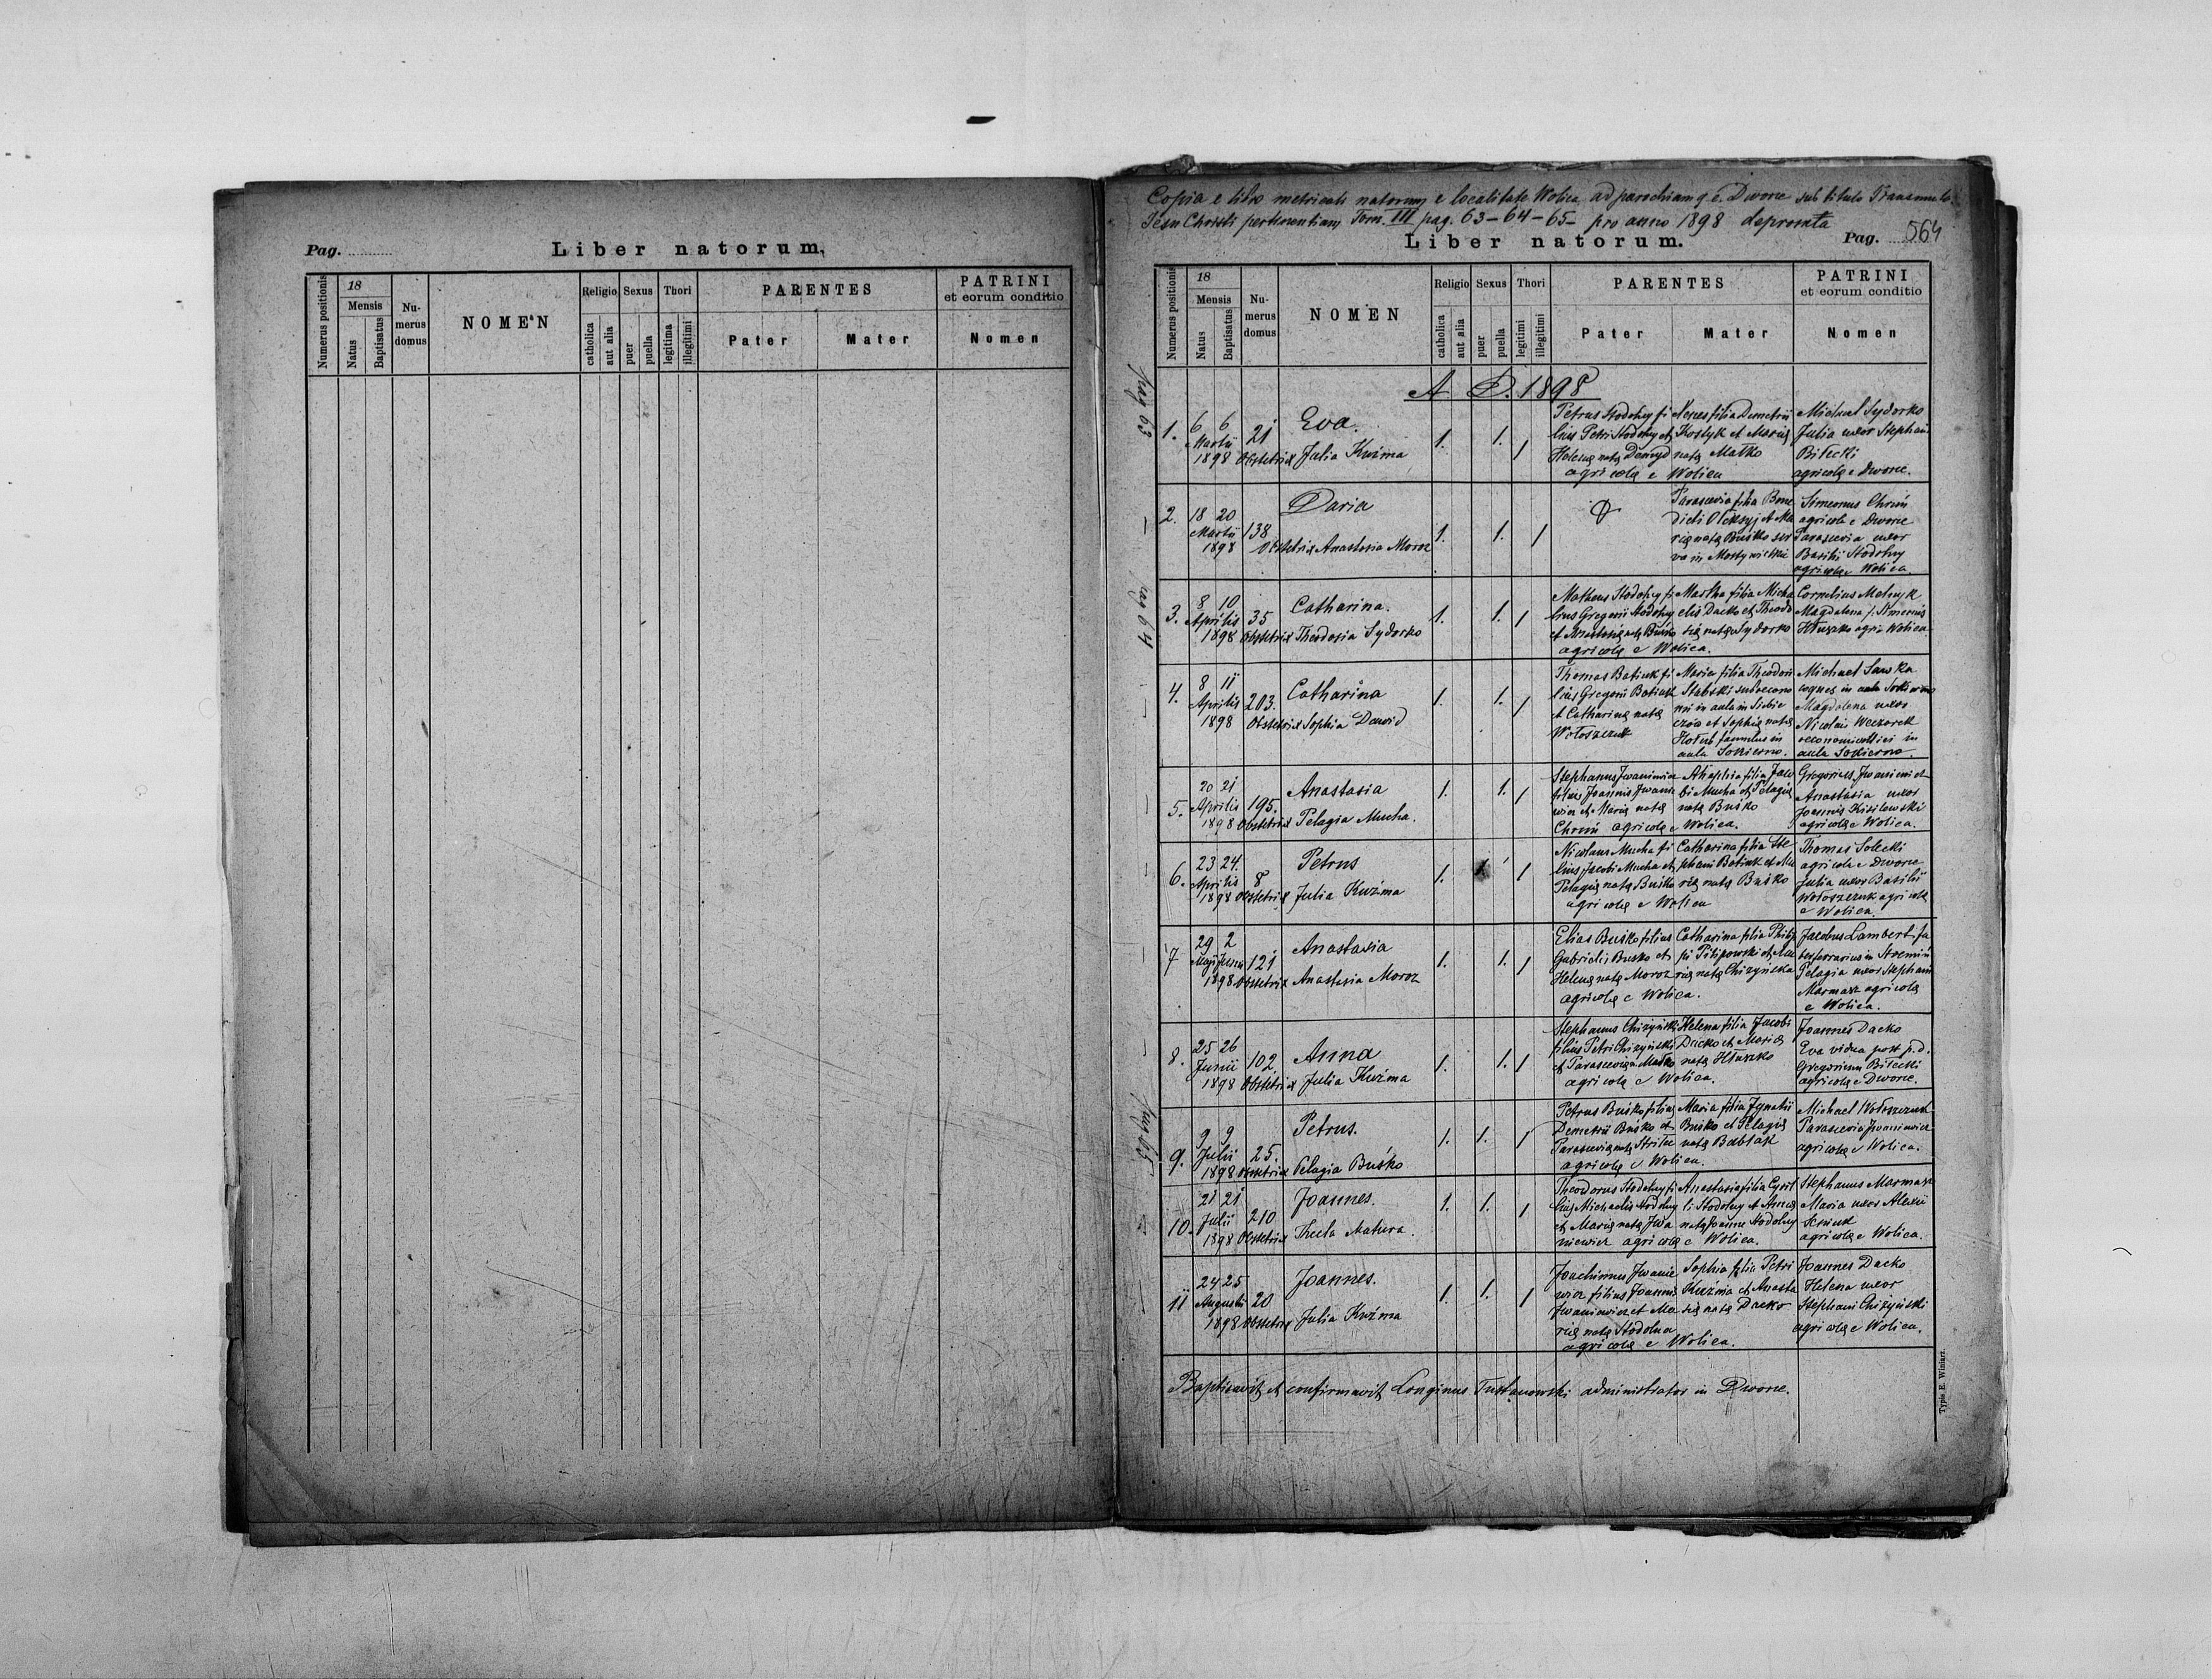 Pag. ............
Liber natorum.
Numerus positionis
18
Mensis
Natus
Baptisatus
Nu-
merus
domus
NOMEN
Religio
catholica
aut alia
Sexus
puer
puella
Thori
legitima
illegitimi
PARENTES
Pater
Mater
PATRINI
et eorum conditio
Nomen
Copia e libro metricali natorum e localitate Wolica ad parochiam g. c. Dworce sub titulo
Jesu Christi pertinentiam Tom. III pag. 63–64–65– pro anno 1898 deprompta
Liber natorum.
Pag. 564
Numerus positionis
18
Mensis
Natus
Baptisatus
Nu-
merus
domus
NOMEN
Religio
catholica
aut alia
Sexus
puer
puella
Thori
legitimi
illegitimi
PARENTES
Pater
Mater
PATRINI
et eorum conditio
Nomen
A D. 1898
pag 63
1.
6 6
Martii
1898
21
Obstetrix
Eva.
Julia Kuźma
1.
1.
1
Petrus Stodolny fi
lius Petri Stodolny et
Helenę natę Demyd
agricolę e Wolica
filia Demetrii
Kostyk et Marię
natę Matko
Michael Sydorko
Julia uxor Stephani
Biłecki
agricolę e Dworce.
2.
18 20
Martii
1898
138
Obstetrix
Daria
Anastasia Moroz
1.
1.
1
Parascevia filia Bene
dicti Oleksyj et Ma
rię natę Buśko ser
va in
Simeonus
agricola e Dworce
Parascevia uxor
Basilii Stodolny
agricolę e Wolica
pag 64
3.
8 10
Aprilis
1898
35
Obstetrix
Catharina.
Theodosia Sydorko
1.
1.
1
Matheus Stodolny fi
lius Gregorii Stodolny
et Anastasię natę Buśko
agricolę e Wolica.
Martha filia Micha
elis Dacko et Theodo
się natę Sydorko
Cornelius Melnyk
Magdalena f. Simeonis
Hłuszko agri. Wolica
4.
8 11
Aprilis
1898
203.
Obstetrix
Catharina
Sophia Dawid
1.
1.
1
Thomas Batiuk fi
lius Gregorii Batiuk
et Catharinę natę
Wołoszczuk
Maria filia Theodori
Słabski suboecono
mi in aula in
et Sophię natę
Hołub famulus in
aula
Michael Sawka
in aula
Magdalena uxor
Nicolai Weczorek
in
aula
5.
20 21
Aprilis
1898
195.
Obstetrix
Anastasia
Pelagia Mucha.
1.
1.
1
Stephanus Iwaniewicz
filius Joannis Iwanie
wicz et Marię natę
agricolę e Wolica.
Ahaphia filia Jaco
bi Mucha et Pelagię
natę Buśko
Gregorius Iwaniewicz
Anastasia uxor
Joannis Kisilewski
agricolę e Wolica.
6.
23 24.
Aprilis
1898
8
Obstetrix
Petrus
Julia Kuźma
1.
1
1
Nicolaus Mucha fi
lius Jacobi Mucha et
Pelagię natę Buśko
agricolę e Wolica
Catharina filia Ste
phani Batiuk et Ma
rię natę Buśko
Thomas Solecki
agricola e Dworce
Julia uxor Basilii
Wołoszczuk agricolę
e Wolica.
7
29 2
Maji Junii
1898
121
Obstetrix
Anastasia
Anastasia Moroz
1.
1.
1
Elias Buśko filius
Gabrielis Buśko et
Helenę natę Moroz
agricolę e Wolica.
Catharina filia Philip
pi Pilipowski et Ma
rię natę Chiżyńska
Jacobus Lambert fa
ber ferrarius in Stremiń
Pelagia uxor Stephani
Marmasz agricolę
e Wolica.
8.
25 26
Junii
1898
102
Obstetrix
Anna
Julia Kuźma
1.
1.
1
Stephanus Chiżyński
filius Petri Chiżyński
et Parascevię n. Matko
agricolę e Wolica.
Helena filia Jacobi
Dacko et Marię
natę Hłuszko
Joannes Dacko
Eva vidua post p.d.
Gregorium Biłecki
agricolę e Dworce.
pag 65
9.
9 9
Julii
1898
25.
Obstetrix
Petrus.
Pelagia Buśko
1.
1.
1
Petrus Buśko filius
Demetrii Buśko et
Parascevię natę
agricolę e Wolica.
Maria filia Ignatii
Buśko et Pelagię
natę Babłak
Michael Wołoszczuk
Parascevia Iwaniewicz
agricolę e Wolica.
10.
21 21
Julii
1898
210
Obstetrix
Joannes.
Thecla Matura.
1.
1.
1
Theodorus Stodolny fi
lius Michaelis Stodolny
et Marię natę Iwa
niewicz agricolę e Wolica.
Anastasia filia Cyril
li Stodolny et Annę
natę Stodolny
Stephanus Marmasz
Maria uxor Alexii
agricolę e Wolica.
11
24 25
Augusti
1898
20
Obstetrix
Joannes.
Julia Kuźma
1.
1.
1
Joachimus Iwanie
wicz filius Joannis
Iwaniewicz et Ma
rię natę Stodolna
agricolę e Wolica.
Sophia filia Petri
Kuźma et Anasta
się natę Dacko
Joannes Dacko
Helena uxor
Stephani Chiżyński
agricolę e Wolica.
Baptisavit et confirmavit Longinus Tustanowski administrator in Dworce.
Typis E. Winiarz.